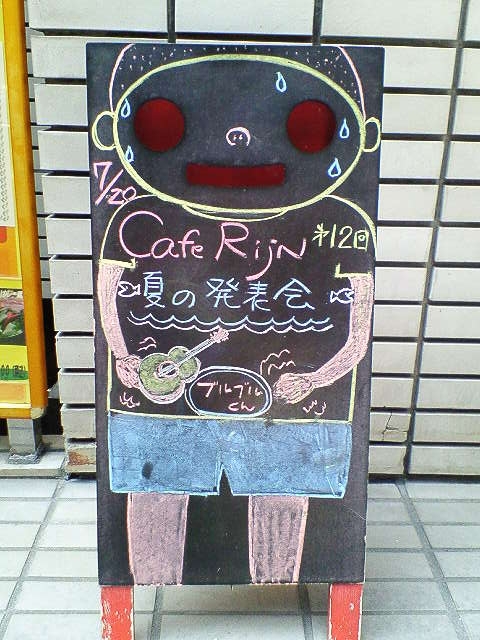 7/20
Cafe Rijn 第12回
夏の発表会
ブルブル
くん